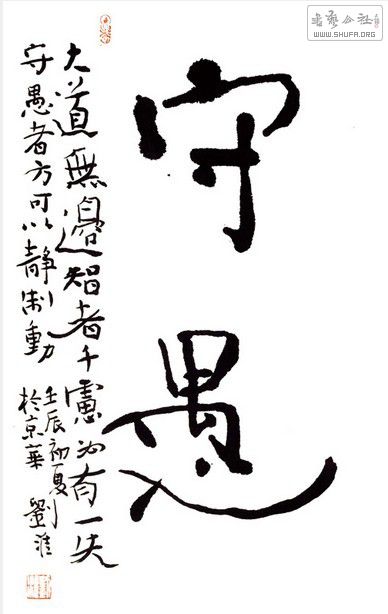 書藝公社
WWW.SHUFA.ORG
守愚
大道無邊智者千慮必有一失
守愚者方可以靜制動
壬辰初夏
於京華劉